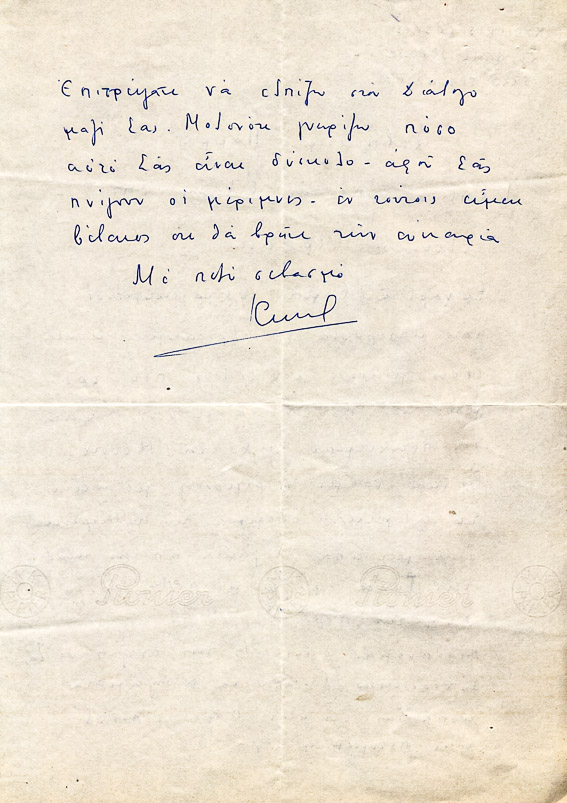 Ἐπιτρέψατε νά ἐλπίζω στόν Διάλογο
μαζί Σας. Μολονότι γνωρίζω πόσο
αὐτό Σᾶς εἶναι δύσκολο - ἀφοῦ Σᾶς
πνίγουν οἱ μέριμνες - ἐν τούτοις εἶμαι
βέβαιος ὅτι θά βρῆτε τήν εὐκαιρία
Μέ πολύ σεβασμό